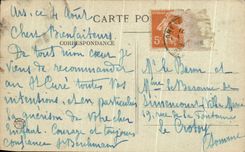 CARTE PO
CORRESPONDANCE
Ars, ce 4 Août
Chers Bienfaiteurs
De tout mon cœur je
viens de recommander
au St Curé toutes vos
intentions, et en particulier
la guérison de votre cher
enfant. Courage et toujours
confiance
Mr le Baron et
Mme la Baronne de
19, rue de la Fontaine
Le Crotoy
Somme